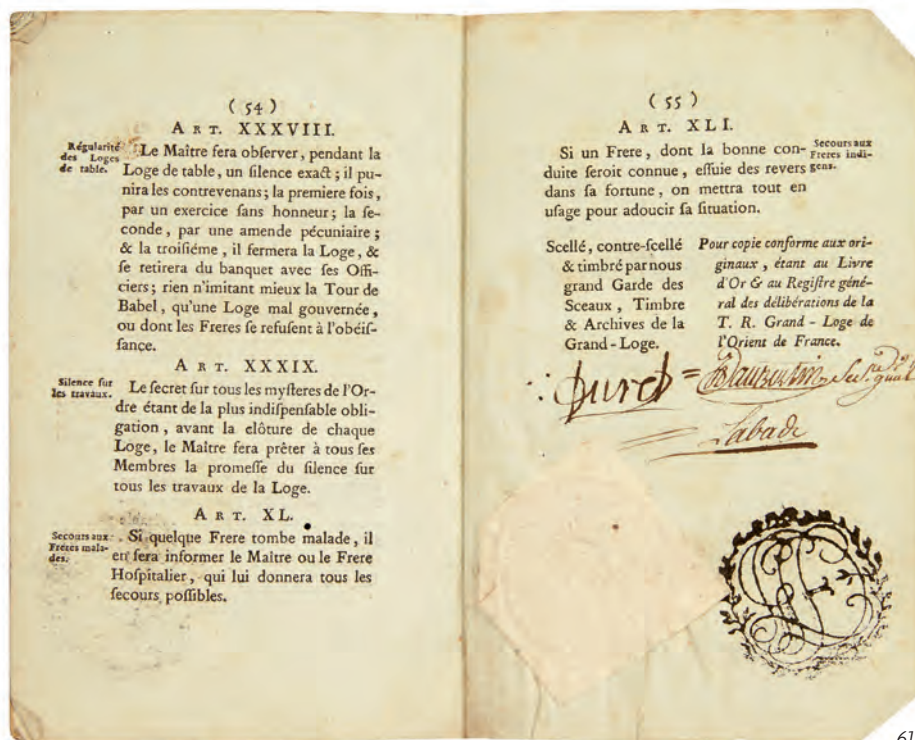 ( 54 )
ART. XXXVIII.
Régularité
des Loges
de table.
Le Maître fera obſerver, pendant la
Loge de table, un ſilence exact ; il pu-
nira les contrevenans ; la premiere fois,
par un exercice ſans honneur ; la ſe-
conde, par une amende pécuniaire ;
& la troiſiéme, il fermera la Loge, &
ſe retirera du banquet avec ſes Offi-
ciers ; rien n'imitant mieux la Tour de
Babel, qu'une Loge mal gouvernée,
ou dont les Freres ſe refuſent à l'obéiſ-
ſance.
ART. XXXIX.
Silence ſur
les travaux.
Le ſecret ſur tous les myſteres de l'Or-
dre étant de la plus indiſpenſable obli-
gation, avant la clôture de chaque
Loge, le Maître fera prêter à tous ſes
Membres la promeſſe du ſilence ſur
tous les travaux de la Loge.
ART. XL.
Secours aux
Freres mala-
des.
Si quelque Frere tombe malade, il
en ſera informer le Maître ou le Frere
Hoſpitalier, qui lui donnera tous les
ſecours poſſibles.
( 55 )
ART. XLI.
Secours aux
Freres indi-
gens.
Si un Frere, dont la bonne con-
duite ſeroit connue, eſſuie des revers
dans ſa fortune, on mettra tout en
uſage pour adoucir ſa ſituation.
Scellé, contre-ſcellé
& timbré par nous
grand Garde des
Sceaux, Timbre
& Archives de la
Grand-Loge.
Pour copie conforme aux ori-
ginaux, étant au Livre
d'Or & au Regiſtre géné-
ral des délibérations de la
T. R. Grand-Loge de
l'Orient de France.
Duret
Daubertin
Labady
61